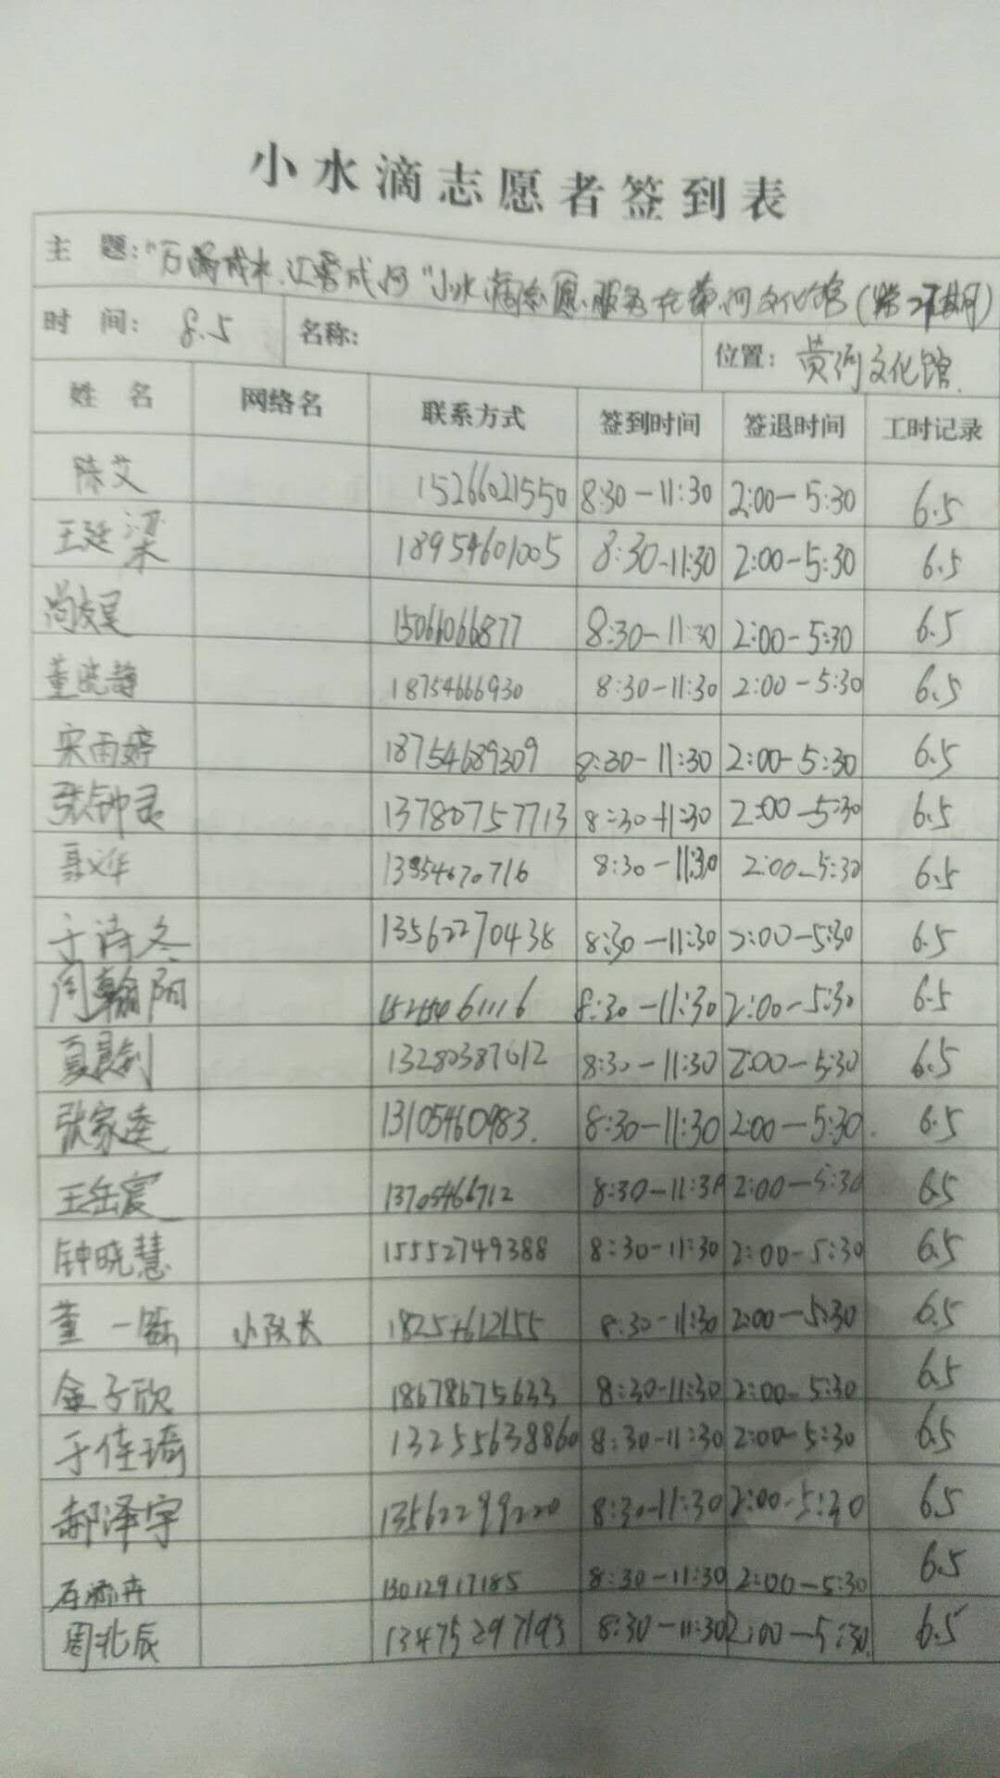 小水滴志愿者签到表
主 题："万滴成水.汇聚成河"小水滴志愿服务在黄河文化馆(第二期)
时 间： 8.5 名称： 位置： 黄河文化馆.
姓 名 网络名 联系方式 签到时间 签退时间 工时记录
陈艾 15266021550 8:30-11:30 2:00-5:30 6.5
王廷梁 18954601005 8:30-11:30 2:00-5:30 6.5
尚友昊 15066066877 8:30-11:30 2:00-5:30 6.5
董晓静 18754666930 8:30-11:30 2:00-5:30 6.5
宋雨婷 18754689309 8:30-11:30 2:00-5:30 6.5
张钟灵 13780757713 8:30-11:30 2:00-5:30 6.5
聂义华 13954670716 8:30-11:30 2:00-5:30 6.5
于诗冬 13562270438 8:30-11:30 2:00-5:30 6.5
闫翰阳 8:30-11:30 2:00-5:30 6.5
13280387612 8:30-11:30 2:00-5:30 6.5
张家逵 13105460983. 8:30-11:30 2:00-5:30. 6.5
王岳宸 13705466712 8:30-11:30 2:00-5:30 6.5
钟晓慧 15552749388 8:30-11:30 2:00-5:30 6.5
董一 小队长 18254612155 8:30-11:30 2:00-5:30 6.5
金子欣 18678675633 8:30-11:30 2:00-5:30 6.5
于佳琦 13255638860 8:30-11:30 2:00-5:30 6.5
郝泽宇 13562299220 8:30-11:30 2:00-5:30 6.5
石添卉 13012917185 8:30-11:30 2:00-5:30 6.5
周北辰 13475297193 8:30-11:30 2:00-5:30. 6.5